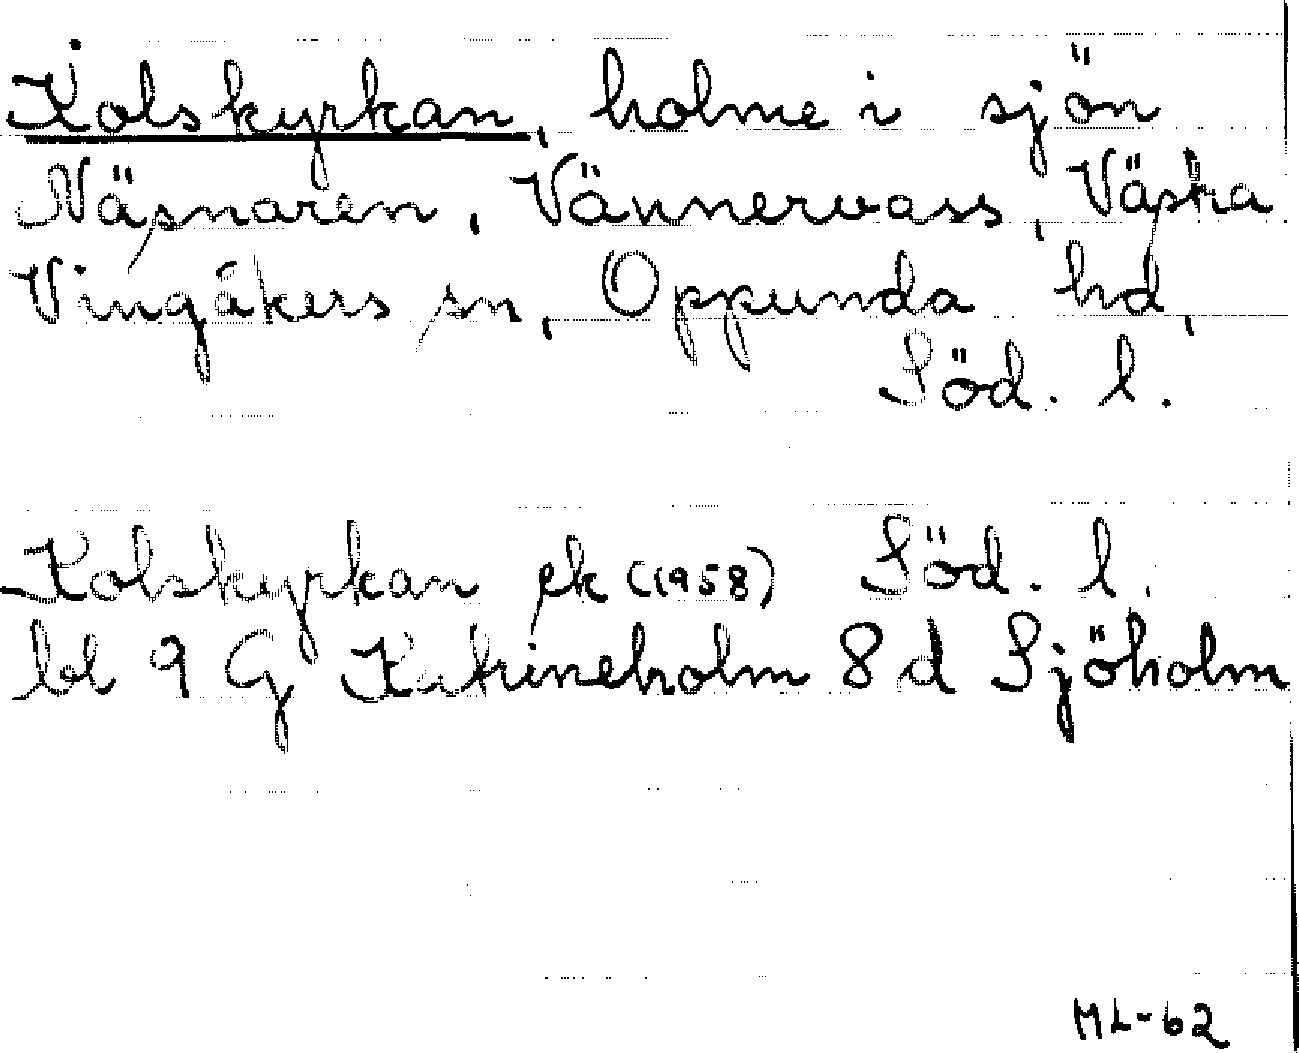 Kolskyrkan, holme i sjön
Näsnaren, Vännervass, Västra
Vingåkers sn, Oppunda hd,
Söd. l.
Kolskyrkan ek (1958) Söd. l.
bl 9 G Katrineholm 8 d Sjöholm
ML-62